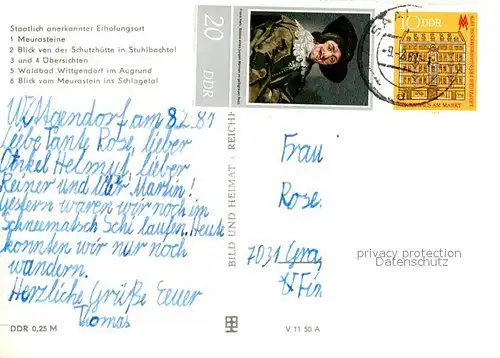 Staatlich anerkannter Erholungsort
1 Meurasteine
2 Blick von der Schutzhütte in Stuhlbachtal
3 und 4 Übersichten
5 Waldbad Wittgendorf im Augrund
6 Blick vom Meurastein ins Schlagetal
20 DDR
10 DDR
Wittgendorf am 8.2.81
Liebe Tante Rose, lieber
Onkel Helmut, lieber
Reiner und Martin!
Gestern waren wir noch im
Schneematsch Schi laufen. Heute
konnten wir nur noch
wandern.
Herzliche Grüße Euer
Thomas
BILD UND HEIMAT · REICH
Frau
Rose
7031
privacy protection
Datenschutz
DDR 0,25 M
V 11 50 A